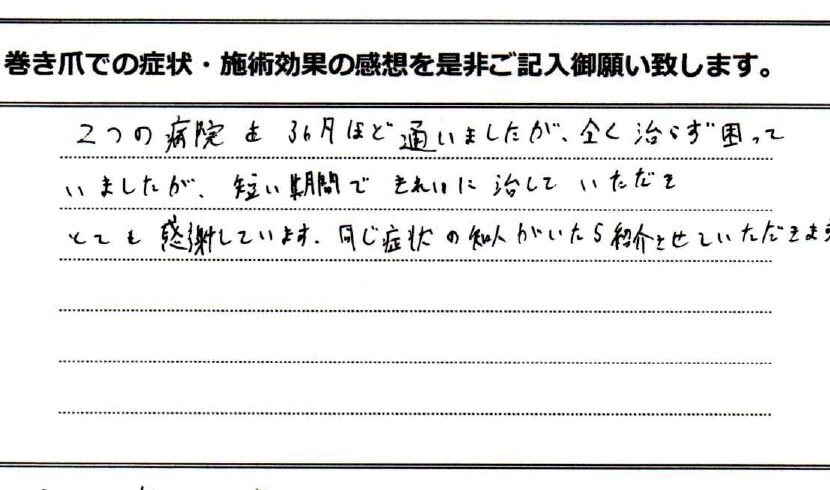 巻き爪での症状・施術効果の感想を是非ご記入御願い致します。
2つの病院を3ヶ月ほど通いましたが、全く治らず困って
いましたが、短い期間できれいに治していただき
とても感謝しています。同じ症状の知人がいたら紹介させていただきます